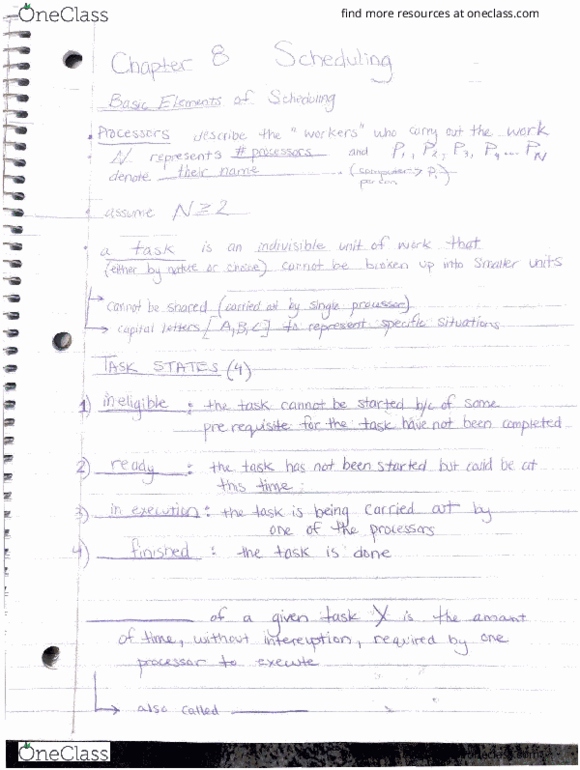 OneClass
find more resources at oneclass.com
Chapter 8 Scheduling
Basic Elements of Scheduling
• Processors describe the "workers" who carry out the work
• N represents # processors and P1, P2, P3, P4 ... PN
denote their name (computer → P1)
person
• assume N ≥ 2
• a task is an indivisible unit of work that
(either by nature or choice) cannot be broken up into smaller units
→ cannot be shared (carried out by single processor)
→ capital letters [A,B,C] to represent specific situations
TASK STATES (4)
1) ineligible : the task cannot be started b/c of some
pre requisite for the task have not been completed
2) ready : the task has not been started but could be at
this time.
3) in execution : the task is being carried out by
one of the processors
4) finished : the task is done
__________ of a given task X is the amount
of time, without interruption, required by one
processor to execute
→ also called __________
OneClass